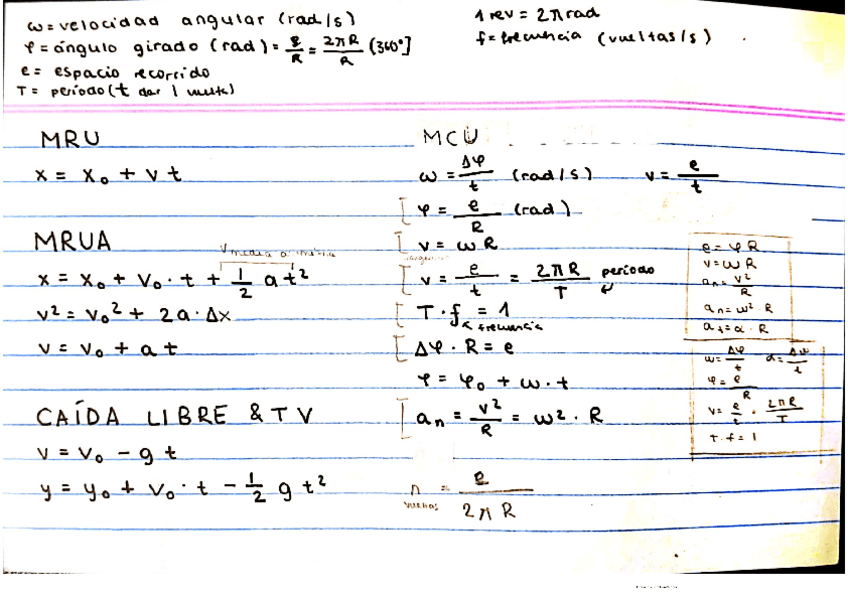 ω=velocidad angular (rad/s)
φ=ángulo girado (rad)= e/R = 2πR/R (360°]
e= espacio recorrido
T= período (t dar 1 vuelta)
1 rev = 2π rad
f=frecuencia (vueltas/s)
MRU
x = x₀ + v t
MRUA
x = x₀ + v₀· t + 1/2 a t²
v² = v₀² + 2a·Δx
v = v₀ + a t
CAÍDA LIBRE & TV
v = v₀ - g t
y = y₀ + v₀· t - 1/2 g t²
MCU
ω = Δφ/t (rad/s) v = e/t
[ φ = e/R (rad)
[ v = ω R
[ v = e/t = 2πR/T período
[ T · f = 1
frecuencia
[ Δφ · R = e
φ = φ₀ + ω · t
[ aₙ = v²/R = ω² · R
n = e/2πR
vueltas
e = φ R
v = ω R
aₙ = v²/R
aₙ = ω² · R
aₜ = α · R
ω = Δφ/t α = Δω/t
φ = e/R
v = e/t = 2πR/T
T · f = 1